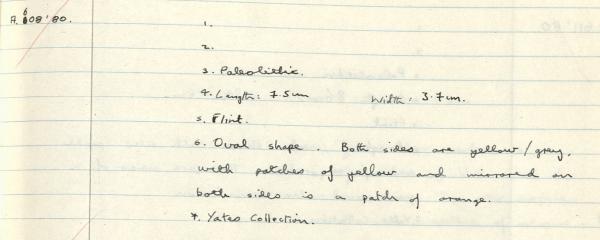 A. 608'80.
1.
2.
3. Paleolithic.
4. Length: 7.5cm Width: 3.7cm.
5. Flint.
6. Oval shape. Both sides are yellow/grey,
with patches of yellow and mirrored on
both sides is a patch of orange.
7. Yates Collection.